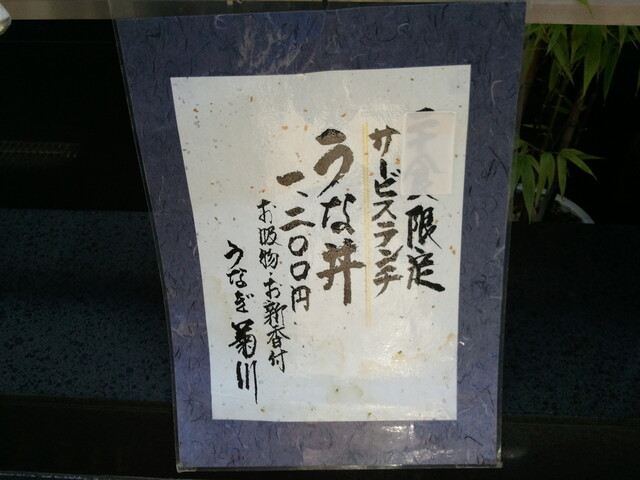 限定
サービスランチ
うな丼
一、三〇〇円
お吸物・お新香付
うなぎ菊川